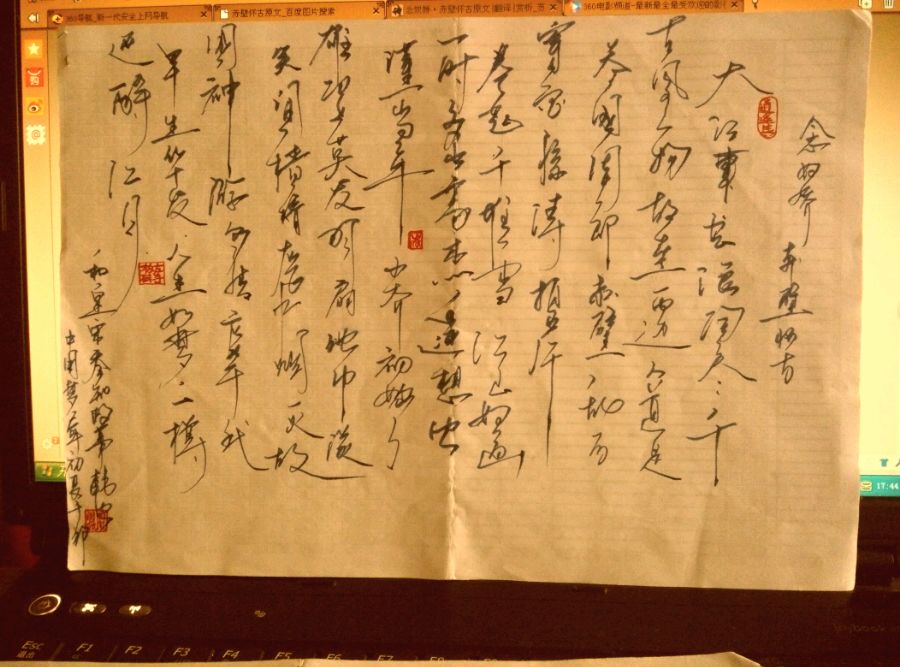 360导航_新一代安全上网导航
赤壁怀古原文_百度图片搜索
念奴娇·赤壁怀古原文|翻译|赏析_范
360电影频道-最新最全最受欢迎的影
念奴娇 赤壁怀古
大江東去浪淘尽千
古風人物故垒西边人道是
三國周郎赤壁乱石
穿空惊涛拍岸
卷起千堆雪 江山如画
一时多少豪杰遥想公
瑾当年 小乔初嫁了
雄姿英发羽扇纶巾谈
笑间樯橹灰飞烟灭故
國神游多情应笑我
早生华发人生如梦一樽
还酹江月
中国梦年初夏
17:44
joybook
Esc
退出
F1
F2
F3
F4
F5
F6
F7
F8
F9